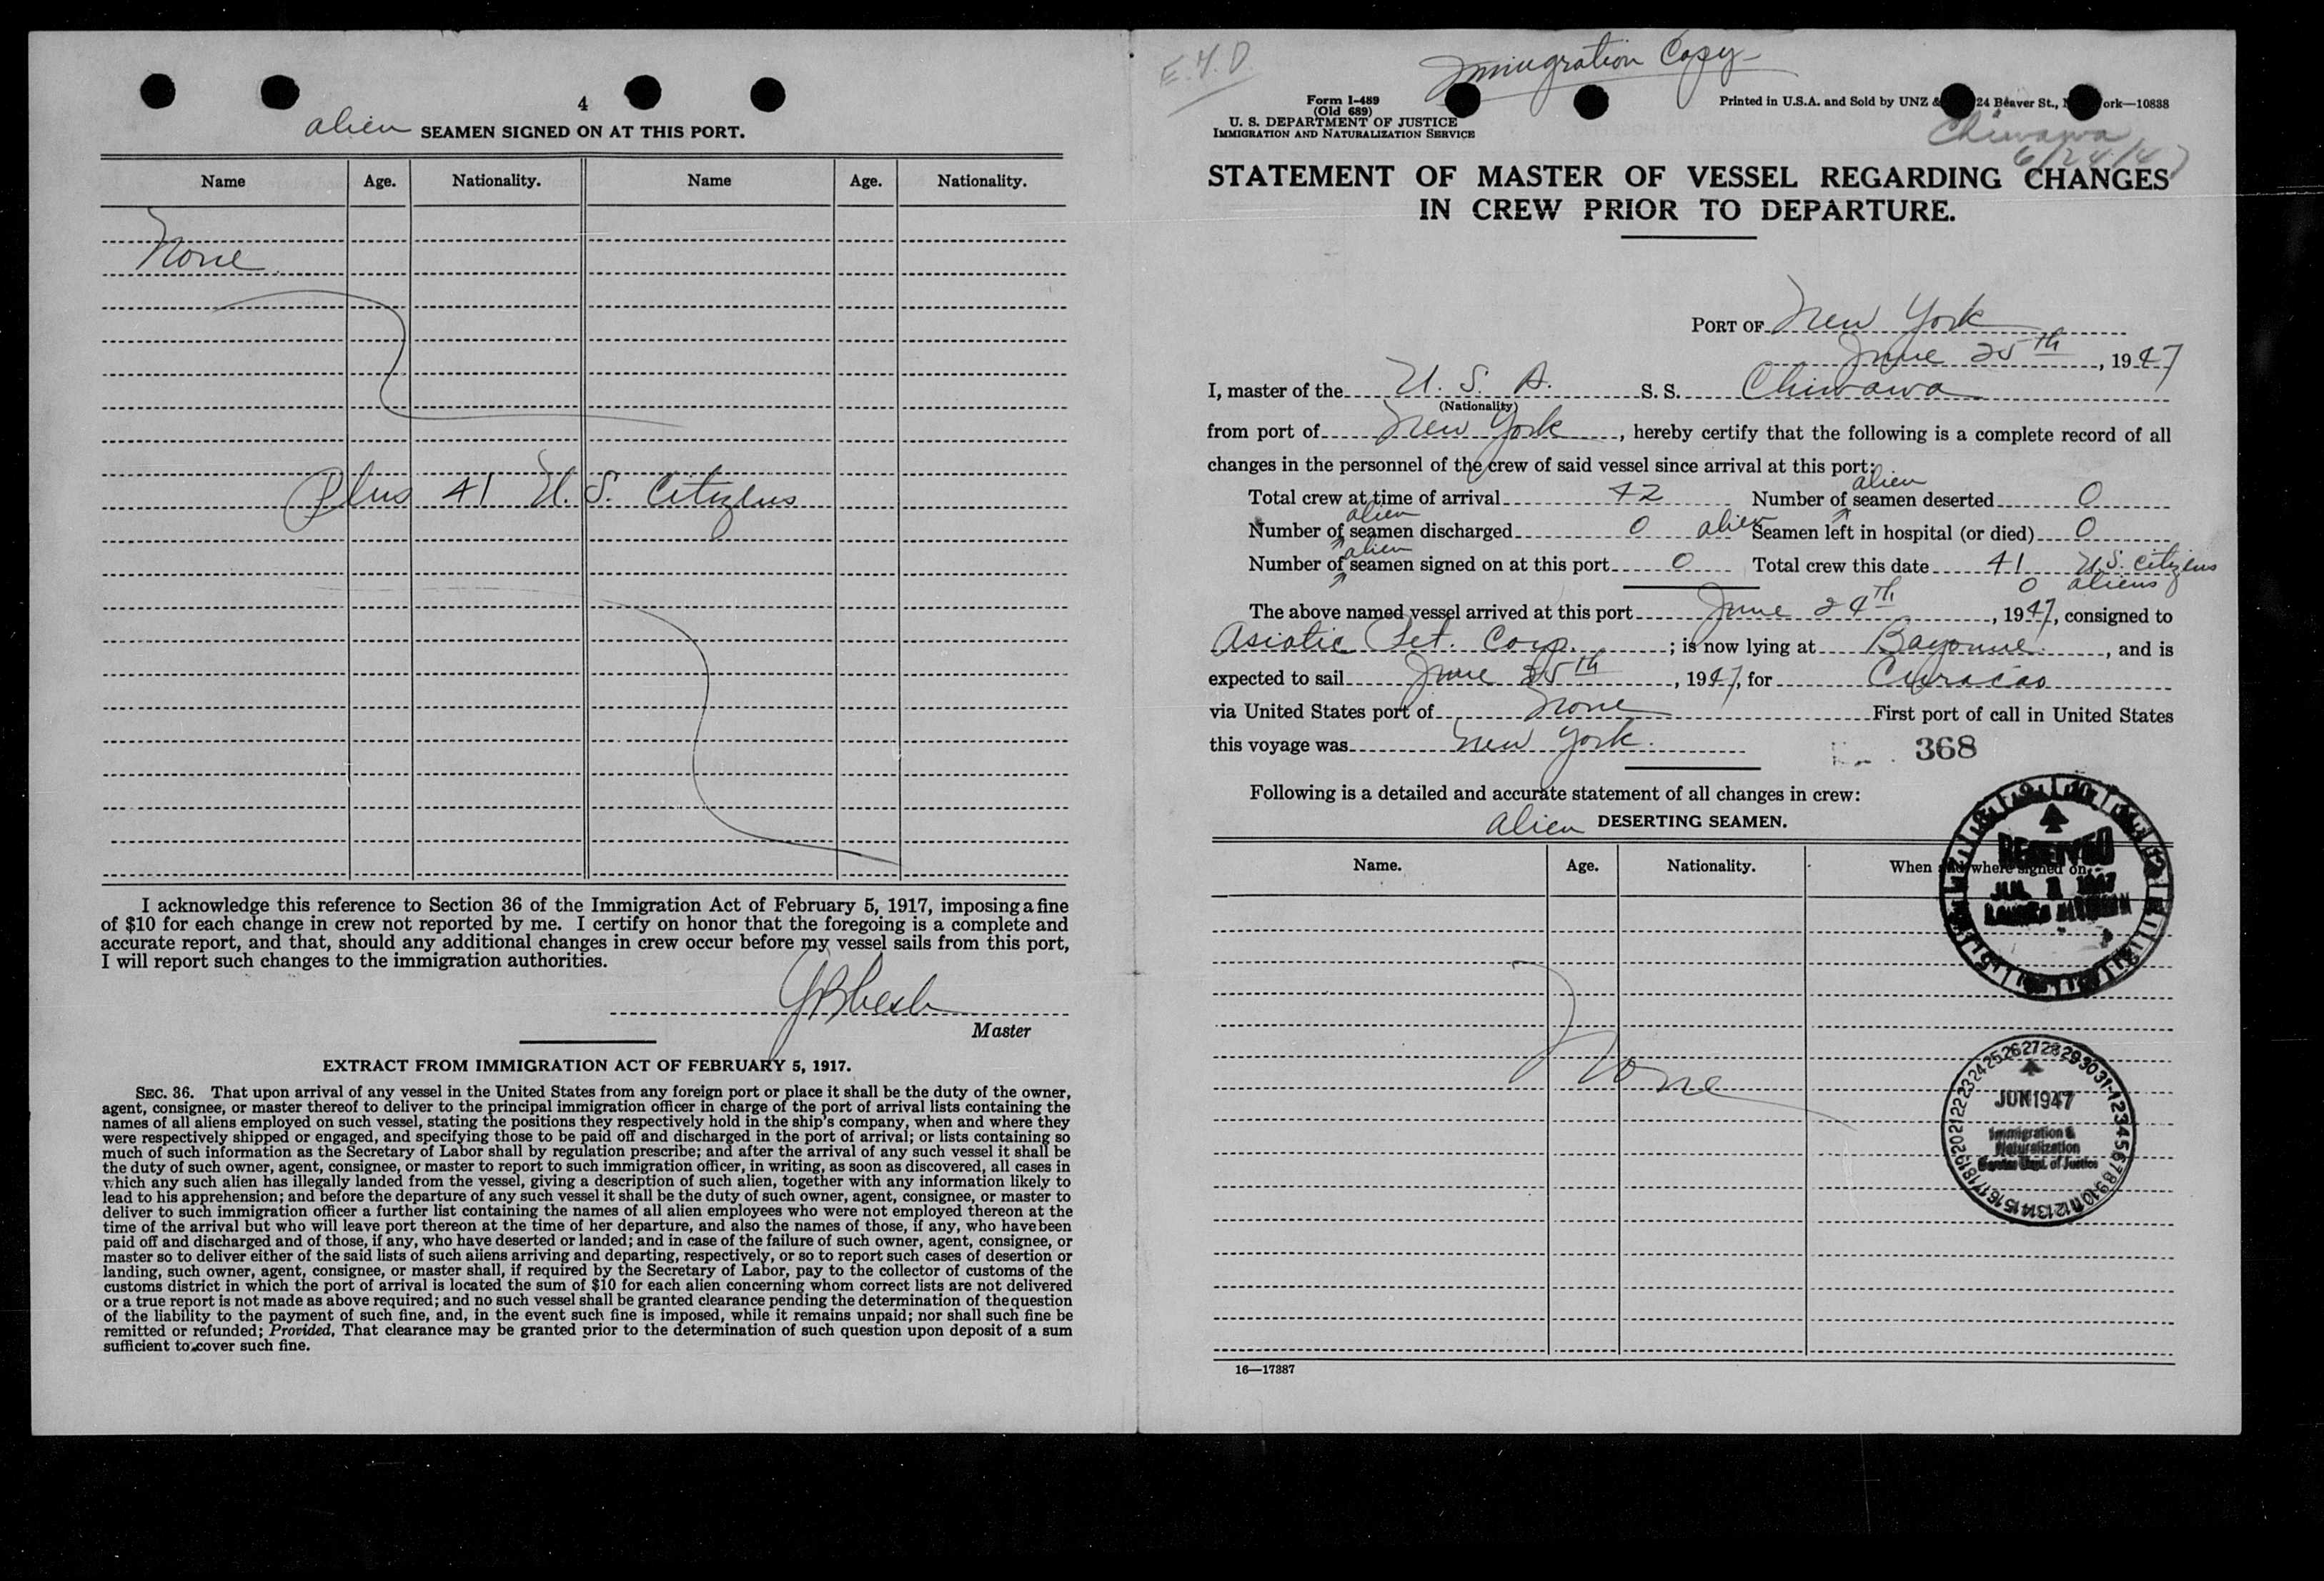 4
alien SEAMEN SIGNED ON AT THIS PORT.
Name Age. Nationality. Name Age. Nationality.
None
Plus 41 U.S. Citizens
I acknowledge this reference to Section 36 of the Immigration Act of February 5, 1917, imposing a fine
of $10 for each change in crew not reported by me. I certify on honor that the foregoing is a complete and
accurate report, and that, should any additional changes in crew occur before my vessel sails from this port,
I will report such changes to the immigration authorities.
Master
EXTRACT FROM IMMIGRATION ACT OF FEBRUARY 5, 1917.
SEC. 36. That upon arrival of any vessel in the United States from any foreign port or place it shall be the duty of the owner,
agent, consignee, or master thereof to deliver to the principal immigration officer in charge of the port of arrival lists containing the
names of all aliens employed on such vessel, stating the positions they respectively hold in the ship's company, when and where they
were respectively shipped or engaged, and specifying those to be paid off and discharged in the port of arrival; or lists containing so
much of such information as the Secretary of Labor shall by regulation prescribe; and after the arrival of any such vessel it shall be
the duty of such owner, agent, consignee, or master to report to such immigration officer, in writing, as soon as discovered, all cases in
which any such alien has illegally landed from the vessel, giving a description of such alien, together with any information likely to
lead to his apprehension; and before the departure of any such vessel it shall be the duty of such owner, agent, consignee, or master to
deliver to such immigration officer a further list containing the names of all alien employees who were not employed thereon at the
time of the arrival but who will leave port thereon at the time of her departure, and also the names of those, if any, who have been
paid off and discharged and of those, if any, who have deserted or landed; and in case of the failure of such owner, agent, consignee, or
master so to deliver either of the said lists of such aliens arriving and departing, respectively, or so to report such cases of desertion or
landing, such owner, agent, consignee, or master shall, if required by the Secretary of Labor, pay to the collector of customs of the
customs district in which the port of arrival is located the sum of $10 for each alien concerning whom correct lists are not delivered
or a true report is not made as above required; and no such vessel shall be granted clearance pending the determination of the question
of the liability to the payment of such fine, and, in the event such fine is imposed, while it remains unpaid; nor shall such fine be
remitted or refunded; Provided, That clearance may be granted prior to the determination of such question upon deposit of a sum
sufficient to cover such fine.
Immigration Copy
Form I-489
(Old 689)
U. S. DEPARTMENT OF JUSTICE
IMMIGRATION AND NATURALIZATION SERVICE
Printed in U.S.A. and Sold by UNZ & 24 Beaver St., ork—10838
Chiwawa
6/24/47
STATEMENT OF MASTER OF VESSEL REGARDING CHANGES
IN CREW PRIOR TO DEPARTURE.
PORT OF New York
June 25th, 1947
I, master of the U. S. A. S. S. Chiwawa
(Nationality)
from port of New York, hereby certify that the following is a complete record of all
changes in the personnel of the crew of said vessel since arrival at this port:
Total crew at time of arrival 42 Number of alien seamen deserted 0
Number of alien seamen discharged 0 alien Seamen left in hospital (or died) 0
Number of alien seamen signed on at this port 0 Total crew this date 41 U.S. Citizens
0 aliens
The above named vessel arrived at this port June 24th, 1947, consigned to
Asiatic Pet. Corp. ; is now lying at Bayonne, and is
expected to sail June 25th, 1947, for Curacao
via United States port of None First port of call in United States
this voyage was New York.
368
Following is a detailed and accurate statement of all changes in crew:
alien DESERTING SEAMEN.
Name. Age. Nationality. When and where signed on.
RECEIVED
1947
None
JUN 1947
Immigration &
Naturalization
Dept. of Justice
16—17387